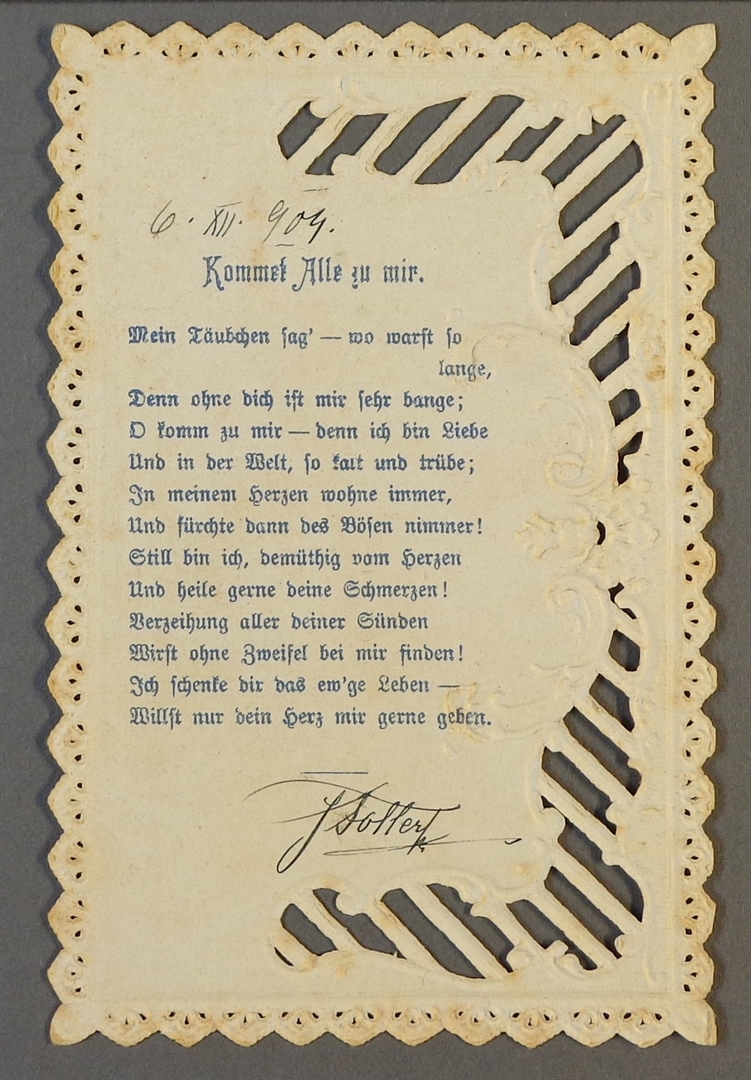 6. XII. 909.
Kommet Alle zu mir.
Mein Täubchen sag' — wo warst so
lange,
Denn ohne dich ist mir sehr bange;
O komm zu mir — denn ich bin Liebe
Und in der Welt, so kalt und trübe;
In meinem Herzen wohne immer,
Und fürchte dann des Bösen nimmer!
Still bin ich, demüthig vom Herzen
Und heile gerne deine Schmerzen!
Verzeihung aller deiner Sünden
Wirst ohne Zweifel bei mir finden!
Ich schenke dir das ew'ge Leben —
Willst nur dein Herz mir gerne geben.